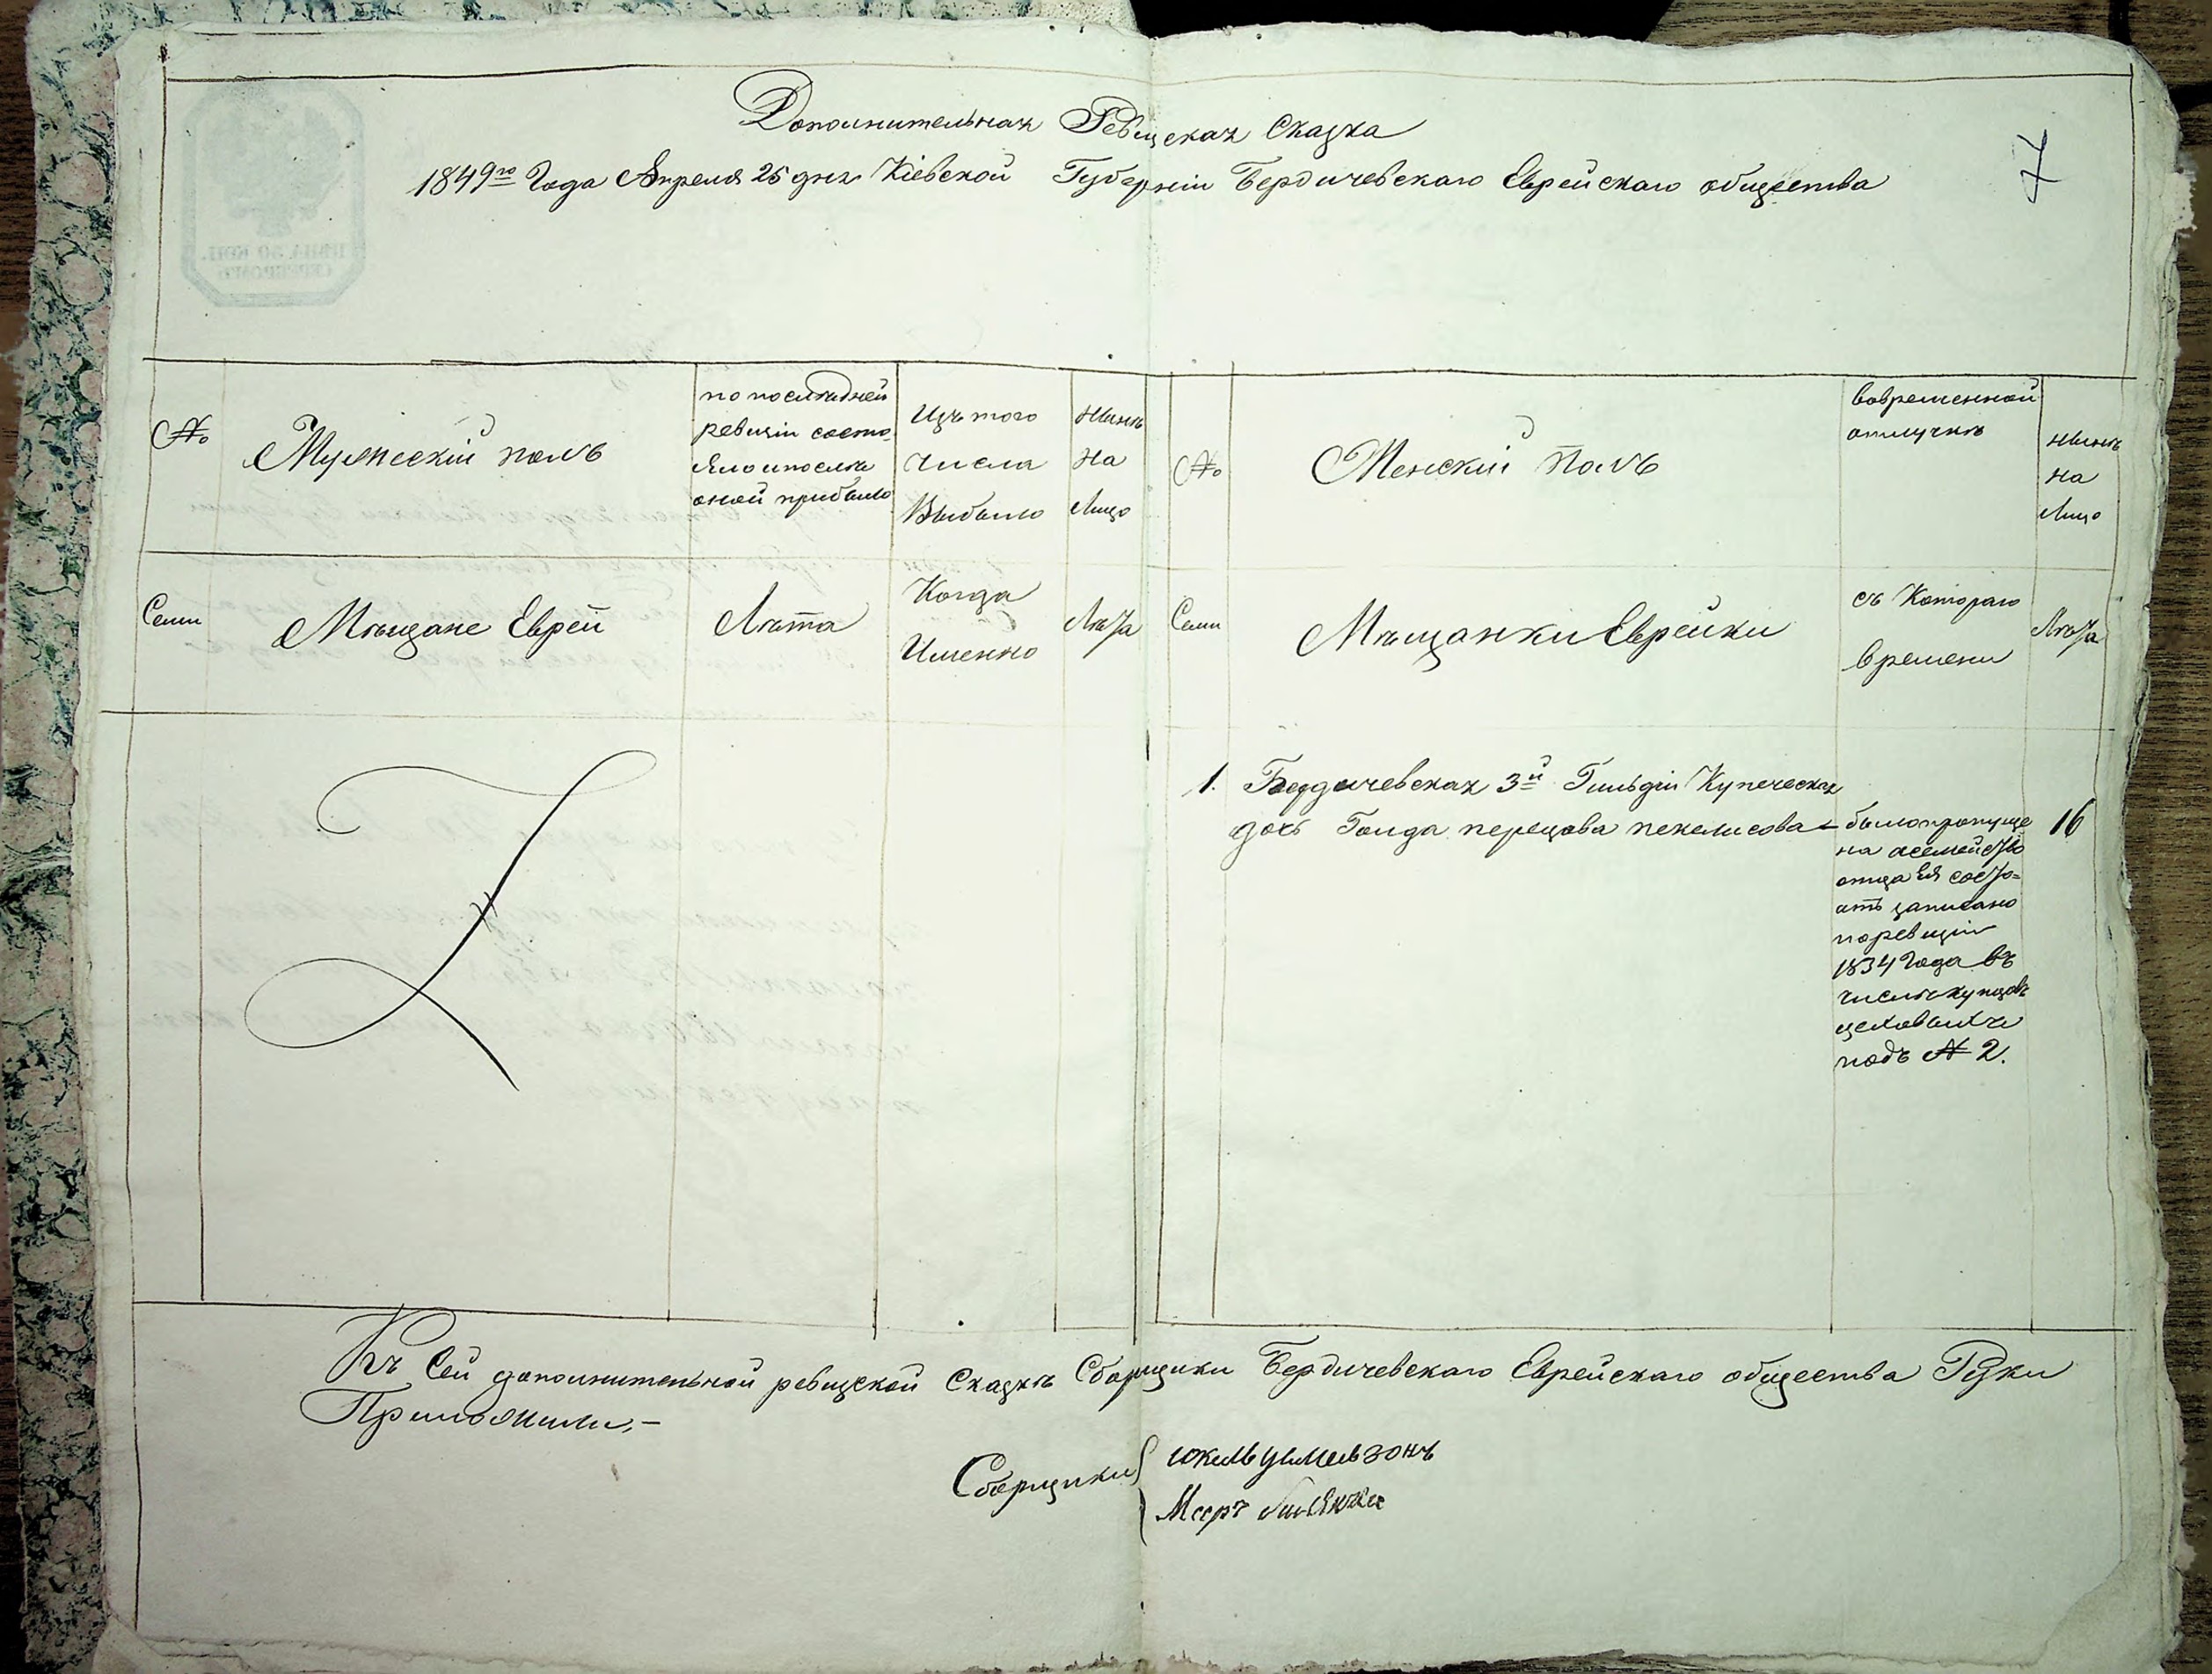 Дополнительная Ревизская Сказка
1849го Года Апреля 25 дня Кіевской Губерніи Бердичевскаго Еврейскаго общества
7
№
Мужескій полъ
по последней
ревизіи состо-
яло и после
оной прибыло
Изъ того
числа
Выбыло
Ныне
на
Лицо
№
Женскій полъ
Вовременной
отлучкѣ
ныне
на
Лицо
Семи
Мѣщане Евреи
Лѣта
Когда
Именно
Лѣта
Семи
Мѣщанки Еврейки
съ Котораго
времени
Лѣта
1. Бердичевская 3й Гильдіи Купеческая
дочь Голда перецова пекелисова – было пропуще 16
на а семейство
отца Ея состо=
итъ записано
поревизіи
1834 Года въ
числѣ купцовъ
цеховыхъ
подъ № 2.
Къ Сей дополнительной ревизской Сказкѣ Сборщики Бердичевскаго Еврейскаго общества Руки
Приложили,–
Сборщики
Мееръ